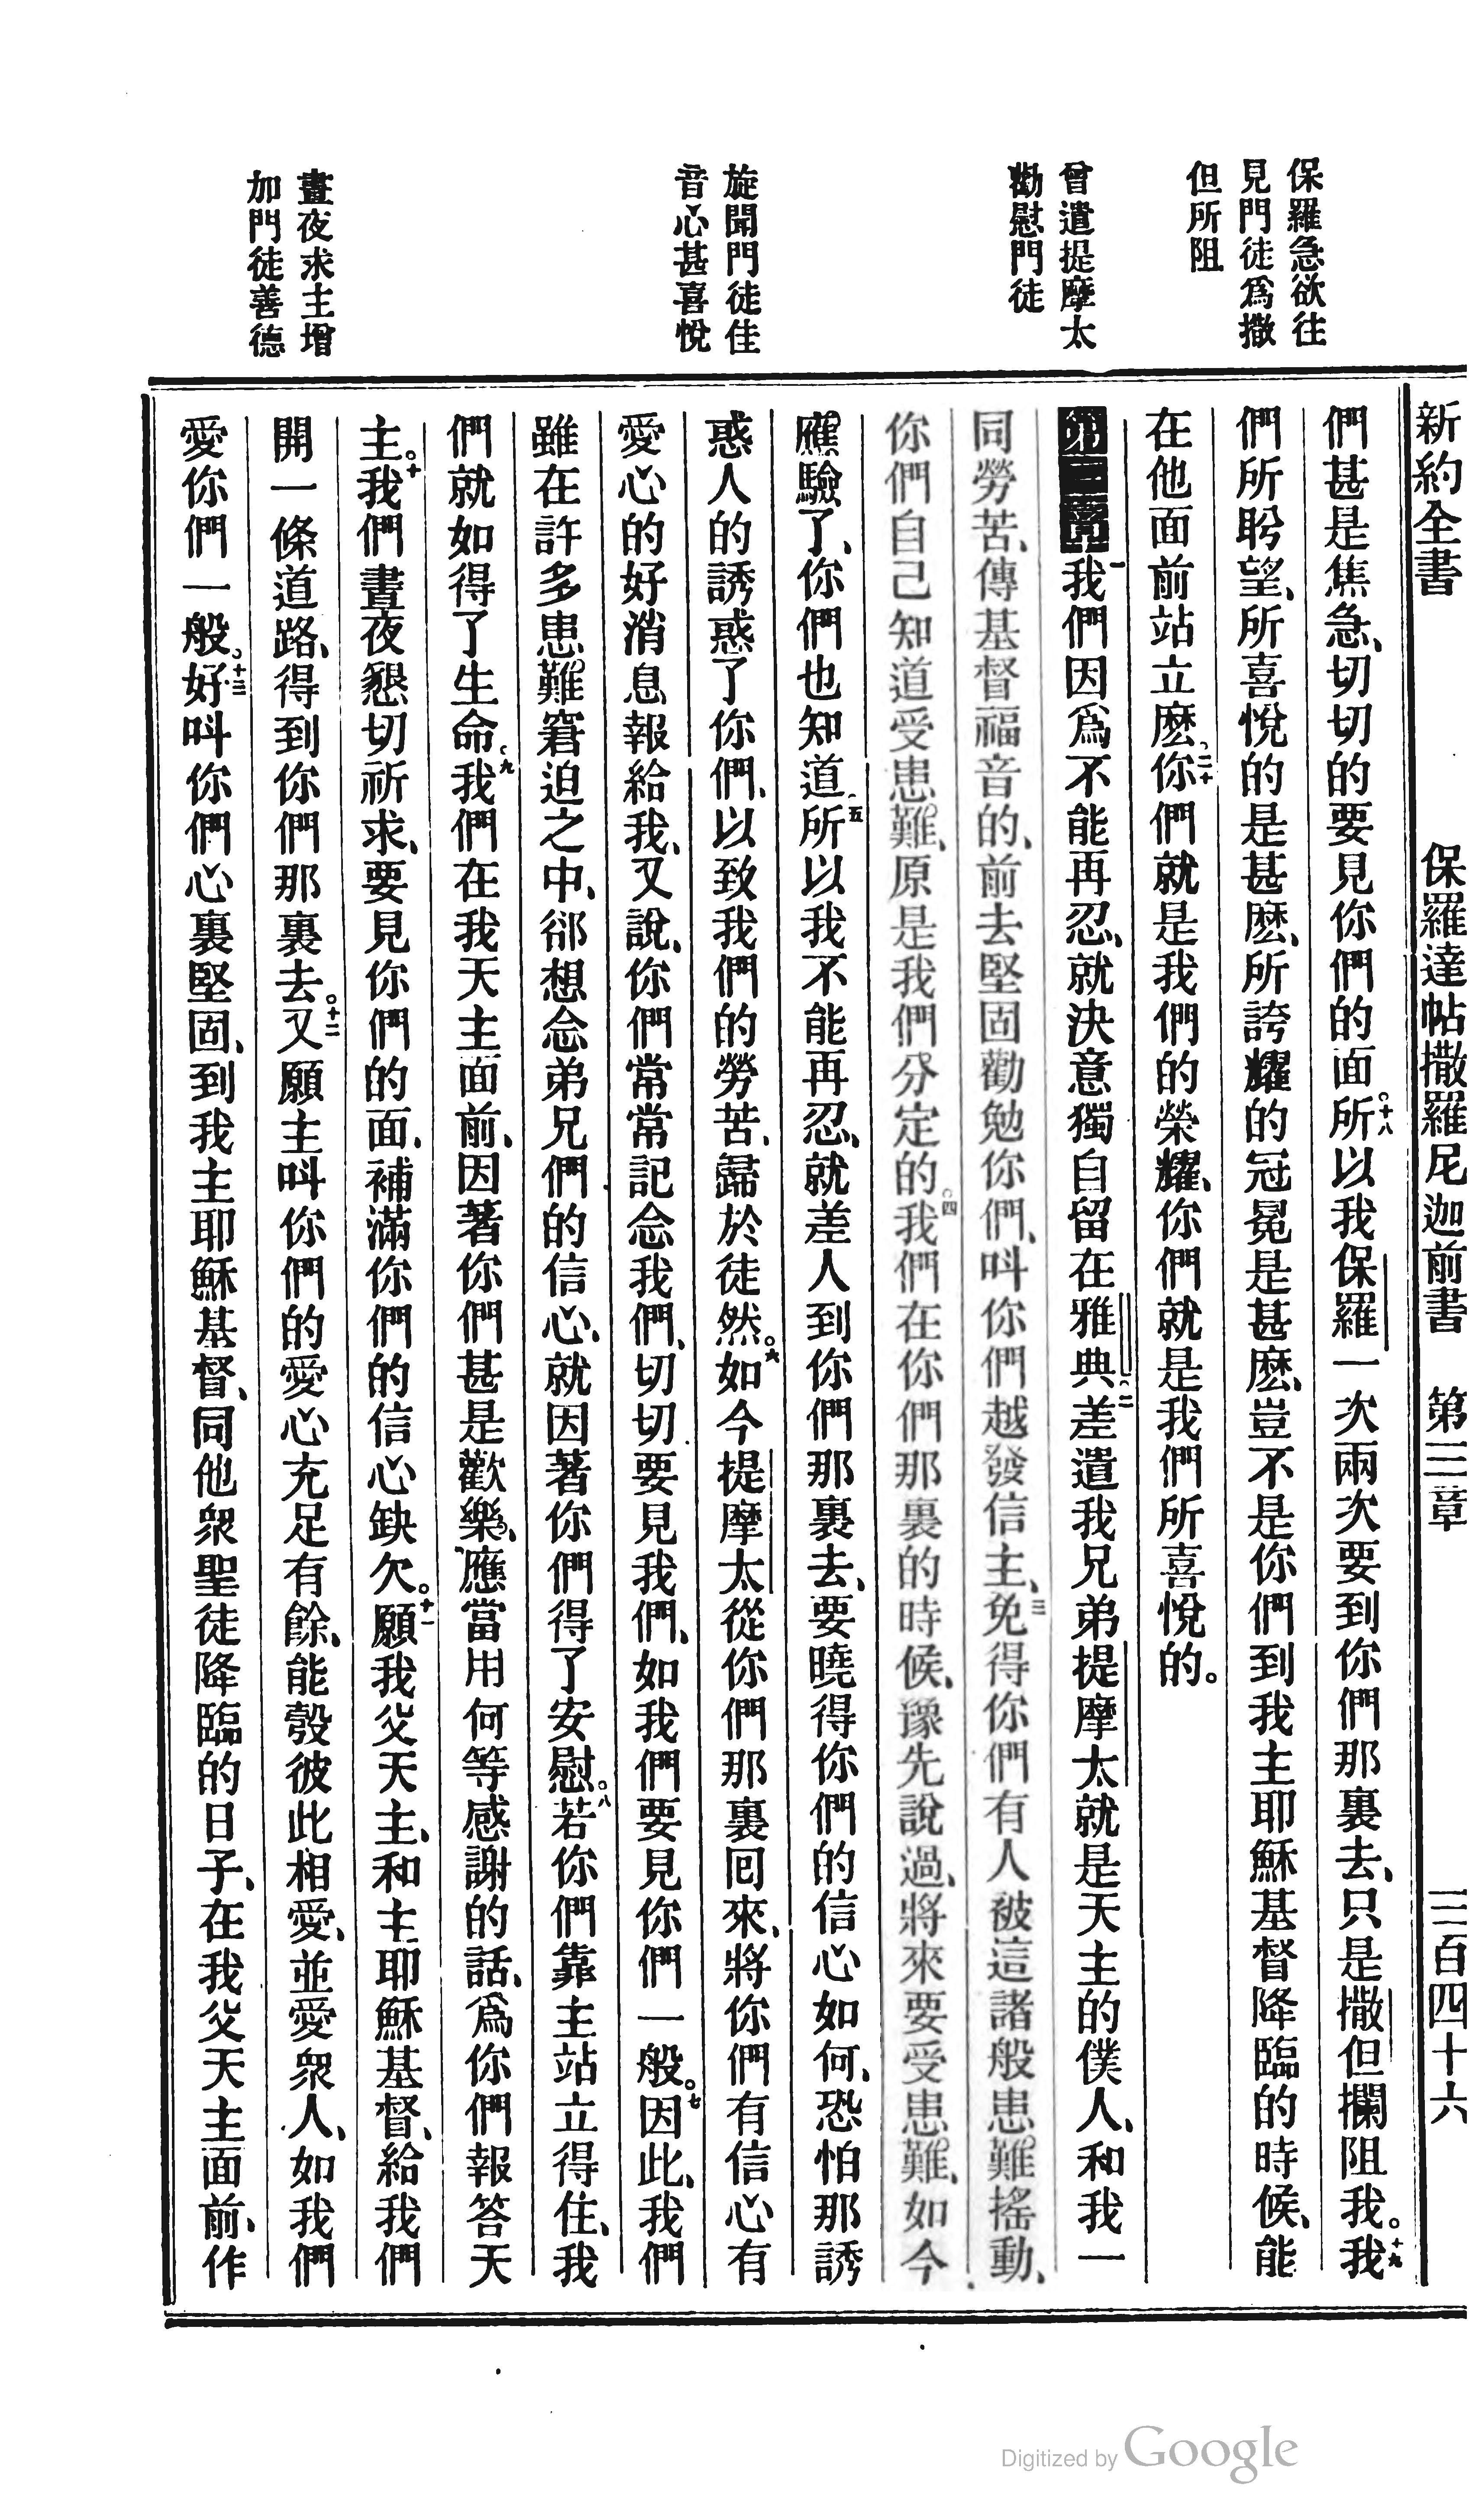 新約全書 保羅達帖撒羅尼迦前書 第三章 三百四十六
保羅急欲往
見門徒爲撒
但所阻
曾遣提摩太
勸慰門徒
旋聞門徒佳
音心甚喜悅
晝夜求主增
加門徒善德
們甚是焦急、切切的要見你們的面。十八所以我保羅一次兩次要到你們那裏去、只是撒但攔阻我。十九我
們所盼望、所喜悅的是甚麽、所誇耀的冠冕是甚麽、豈不是你們到我主耶穌基督降臨的時候、能
在他面前站立麽。二十你們就是我們的榮耀、你們就是我們所喜悅的。
第三章一我們因爲不能再忍、就決意獨自留在雅典。二差遣我兄弟提摩太就是天主的僕人、和我一
同勞苦、傳基督福音的、前去堅固勸勉你們、叫你們越發信主、三免得你們有人被這諸般患難搖動、
你們自己知道受患難、原是我們分定的。四我們在你們那裏的時候、豫先說過、將來要受患難、如今
應驗了、你們也知道。五所以我不能再忍、就差人到你們那裏去、要曉得你們的信心如何、恐怕那誘
惑人的誘惑了你們、以致我們的勞苦、歸於徒然。六如今提摩太從你們那裏囘來、將你們有信心有
愛心的好消息報給我、又說、你們常常記念我們、切切要見我們、如我們要見你們一般。七因此、我們
雖在許多患難窘迫之中、郤想念弟兄們的信心、就因著你們得了安慰。八若你們靠主站立得住、我
們就如得了生命。九我們在我天主面前、因著你們甚是歡樂、應當用何等感謝的話、爲你們報答天
主。十我們晝夜懇切祈求、要見你們的面、補滿你們的信心缺欠。十一願我父天主、和主耶穌基督、給我們
開一條道路、得到你們那裏去。十二又願主叫你們的愛心充足有餘、能彀彼此相愛、並愛衆人、如我們
愛你們一般。十三好叫你們心裏堅固、到我主耶穌基督、同他衆聖徒降臨的日子、在我父天主面前、作
Digitized by Google